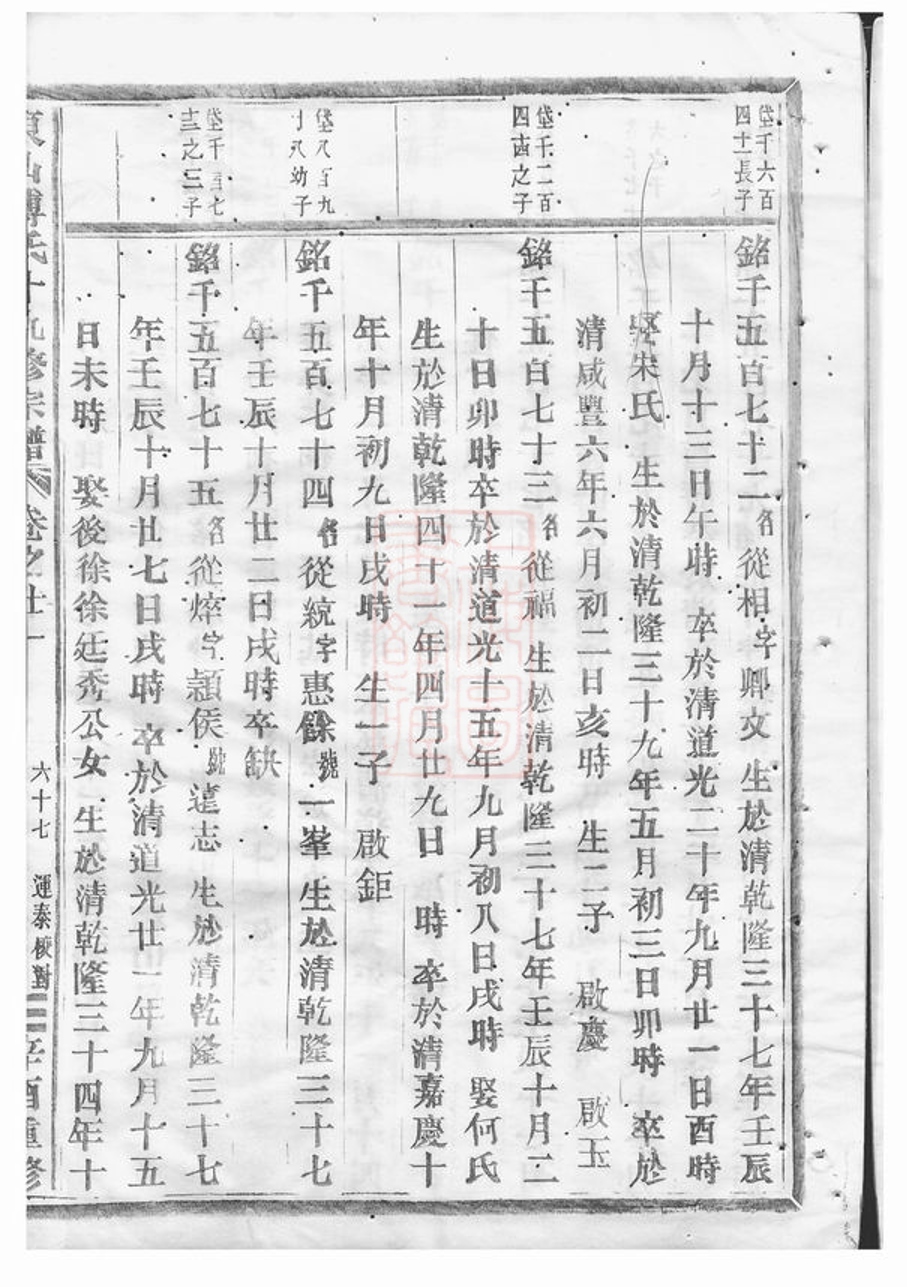 垈千六百
四十一長子
銘千五百七十二名從相字卿文 生於清乾隆三十七年壬辰
十月十三日午時 卒於清道光二十年九月廿一日酉時
娶宋氏 生於清乾隆三十九年五月初三日卯時 卒於
清咸豐六年六月初二日亥時 生二子 啟慶 啟玉
垈千二百
四十四之子
銘千五百七十三名從福 生於清乾隆三十七年壬辰十月二
十日卯時卒於清道光十五年九月初八日戌時 娶何氏
生於清乾隆四十一年四月廿九日 時 卒於清嘉慶十
年十月初九日戌時 生一子 啟鉅
垈八百九
十八幼子
銘千五百七十四名從統字惠餘號一峯 生於清乾隆三十七
年壬辰十月廿二日戌時卒缺
垈千百七
十二之三子
銘千五百七十五名從焠字頴侯號遠志 生於清乾隆三十七
年壬辰十月廿七日戌時 卒於清道光廿一年九月十五
日未時 娶後徐徐廷秀公女 生於清乾隆三十四年十
氏十九修宗譜 卷之廿一 六十七 運泰校對 辛酉重修